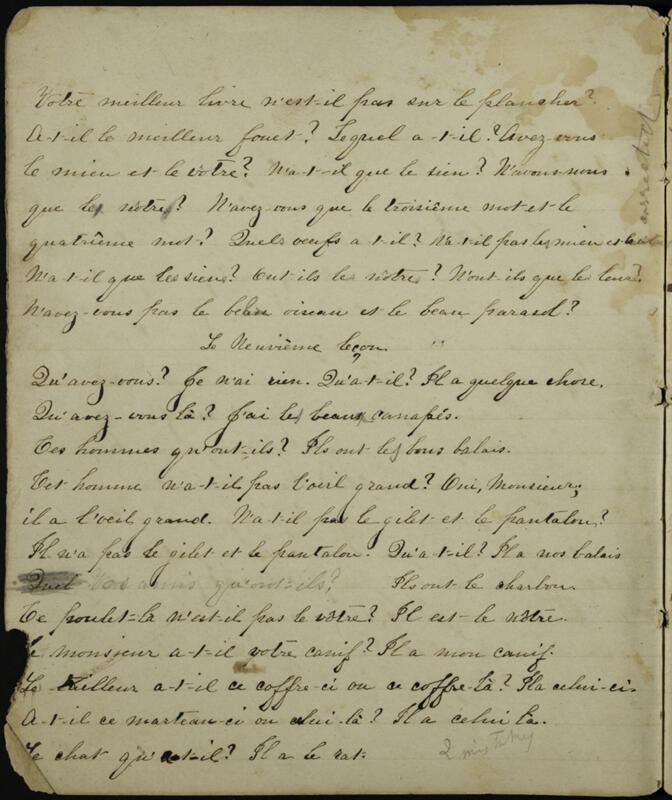 Votre meilleur livre n'est-il pas sur le plancher?
A-t-il le meilleur fouet? Lequel a-t-il? Avez-vous
le mien et le vôtre? N'a-t-il que le sien? N'avons-nous
que les nôtres? N'avez-vous que le troisième mot et le
quatrième mot? Quels oeufs a-t-il? N'a-t-il pas les mien et
N'a-t-il que les siens? Ont-ils les nôtres? N'ont-ils que les leurs?
N'avez-vous pas le bel oiseau et le beau parasol?
corrected
Le Neuvième leçon.
Qu'avez-vous? Je n'ai rien. Qu'a-t-il? Il a quelque chose.
Qu'avez-vous là? J'ai les beaux canapés.
Ces hommes qu'ont-ils? Ils ont les bons balais.
Cet homme n'a-t-il pas l'oeil grand? Oui, Monsieur;
il a l'oeil grand. N'a-t-il pas le gilet et le pantalon?
Il n'a pas le gilet et le pantalon. Qu'a-t-il? Il a nos balais
Vos amis qu'ont-ils? Ils ont le charbon.
Ce poulet-là n'est-il pas le vôtre? Il est le nôtre.
monsieur a-t-il votre canif? Il a mon canif.
Le tailleur a-t-il ce coffre-ci ou ce coffre-là? Il a celui-ci.
A-t-il ce marteau-ci ou celui-là? Il a celui là.
Le chat qu'a-t-il? Il a le rat.
2 mistakes